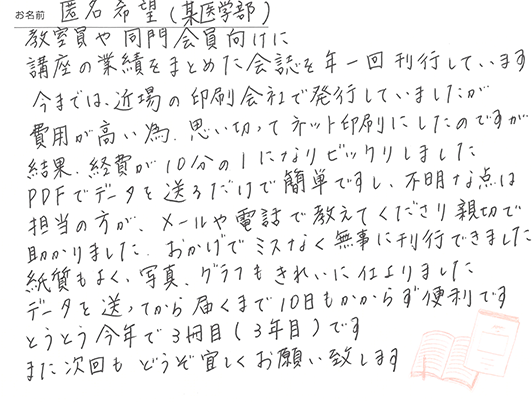 お名前 匿名希望(某医学部)
教室員や同門会員向けに
講座の業績をまとめた会誌を年一回刊行しています
今までは、近場の印刷会社で発行していましたが
費用が高い為、思い切ってネット印刷にしたのですが
結果、経費が10分の1になりビックリしました
PDFでデータを送るだけで簡単ですし、不明な点は
担当の方が、メールや電話で教えてくださり親切で
助かりました。おかげでミスなく無事に刊行できました
紙質もよく、写真、グラフもきれいに仕上りました
データを送ってから届くまで10日もかからず便利です
とうとう今年で3冊目(3年目)です
また次回もどうぞ宜しくお願い致します